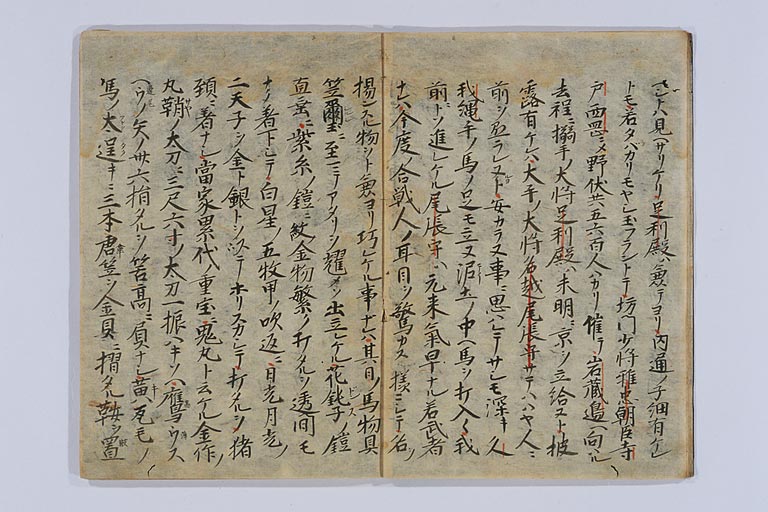 サトハ見ヘサリケリ足利殿ハ兼テヨリ内通ノ子細有ケレ
トモ若タバカリモヤシ玉フラントテ坊門少将雅忠朝臣寺
戸西罡ノ野伏共五六百人ハカリ催テ岩蔵邉ヘ向ハル
去程ニ搦手ノ大将足利殿ハ未明ニ京ヲ立給ヌト披
露有ケレハ大手ノ大将名越尾張守サテハハヤ人ニ
前ヲラレヌト安カラヌ事ニ思ハレテサシモ深キ久
我縄手ノ馬ノ足モ立ヌ泥土ノ中ヘ馬ヲ打入レ我
前ニトソ進レケル尾張守ハ元来氣早ナル若武者
ナレハ今度ノ合戦人ノ耳目ヲ驚カス様ニシテ名ヲ
揚ンスル物ヲト兼ヨリ巧レケル事ナレハ其日ノ馬物具
笠ニ至マテアタリヲ耀カメ出立レケル花鈍子ノ鎧
直垂ニ紫糸ノ鎧ニ紋金物繁ク打タルヲ透間モ
ナク着下シテ白星ノ五枚甲ノ吹返ニ日光月光ノ
二天子ヲ金ト銀トニテホリスカシテ打タルヲ猪
頚ニ着ナシ當家累代ノ重宝ニ鬼丸ト云ケル金作ノ
丸鞘ノ太刀ニ三尺六寸ノ太刀一振ハキソヘ鷹ウス
ヘウノ矢ノ卅六指タルヲ筈高ニ負ナシ黄瓦毛ノ
馬ノ太逞キニ三本君笠ヲ金貝ニ摺タル鞍ヲ置